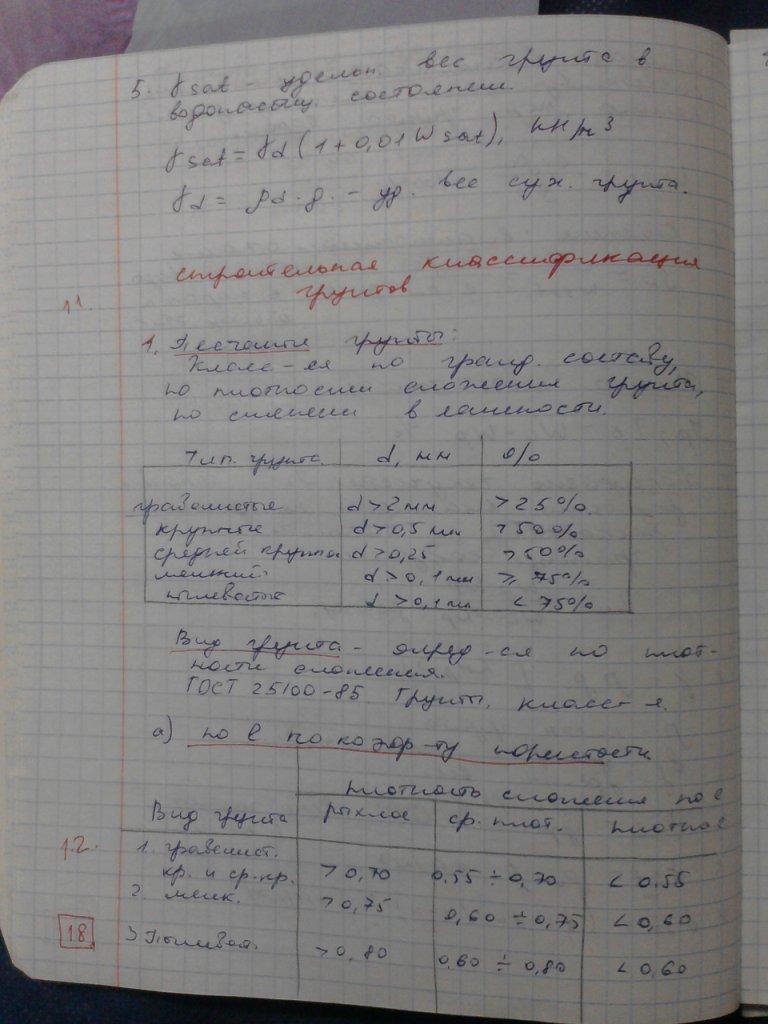 5. γsat – удельн. вес грунта в
водонасыщ. состоянии.
γsat = γd (1+0,01Wsat), кН/м³
γd = ρd·g. – уд. вес сух. грунта.
строительная классификация
11. грунтов
1. Песчаные грунты:
Класс-ся по гран. составу,
по плотности сложения грунта,
по степени влажности.
Тип. грунта d, мм %
гравелистые d>2мм >25%
крупные d>0,5мм >50%
средней крупн. d>0,25 >50%
мелкий d>0,1мм ≥75%
пылеватые d>0,1мм <75%
Вид грунта – опред-ся по плот-
ности сложения.
ГОСТ 25100-85 Грунты, класс-я.
а) по e по коэф-ту пористости.
плотность сложения по e
Вид грунта рыхлое ср. плот. плотное
1. гравелист.
12. кр. и ср.кр. >0,70 0,55 ÷ 0,70 <0.55
2. мелк. >0,75 0,60 ÷ 0,75 <0,60
18 3 Пылеват. >0,80 0,60 ÷ 0,80 <0,60